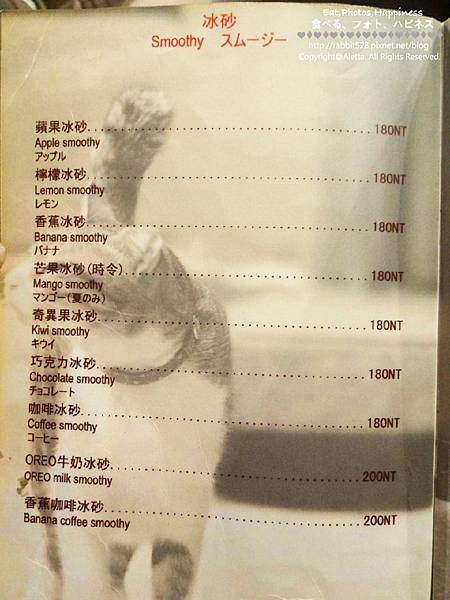 Eat,Photos,Happiness
食べる、フォト、ハピネス
http://rabbit528.pixnet.net/blog
Copyright@Aletta. All Rights Reserved.
冰砂
Smoothy スムージー
蘋果冰砂 180NT
Apple smoothy
アップル
檸檬冰砂 180NT
Lemon smoothy
レモン
香蕉冰砂 180NT
Banana smoothy
バナナ
芒果冰砂(時令) 180NT
Mango smoothy
マンゴー(夏のみ)
奇異果冰砂 180NT
Kiwi smoothy
キウイ
巧克力冰砂 180NT
Chocolate smoothy
チョコレート
咖啡冰砂 180NT
Coffee smoothy
コーヒー
OREO牛奶冰砂 200NT
OREO milk smoothy
香蕉咖啡冰砂 200NT
Banana coffee smoothy